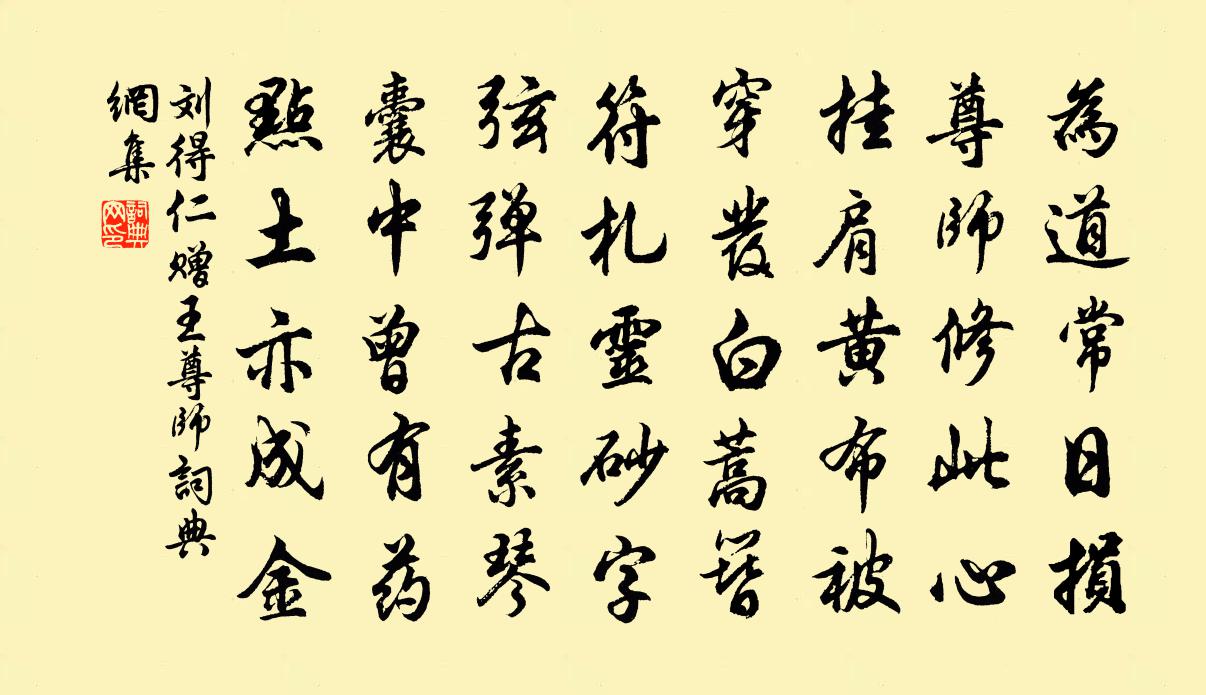 為道常日損
尊師修此心
挂肩黄布被
穿髮白蒿簪
符札靈砂字
弦弹古素琴
囊中曾有药
點土亦成金
刘得仁赠王尊師詞典
網集
詞典
网印